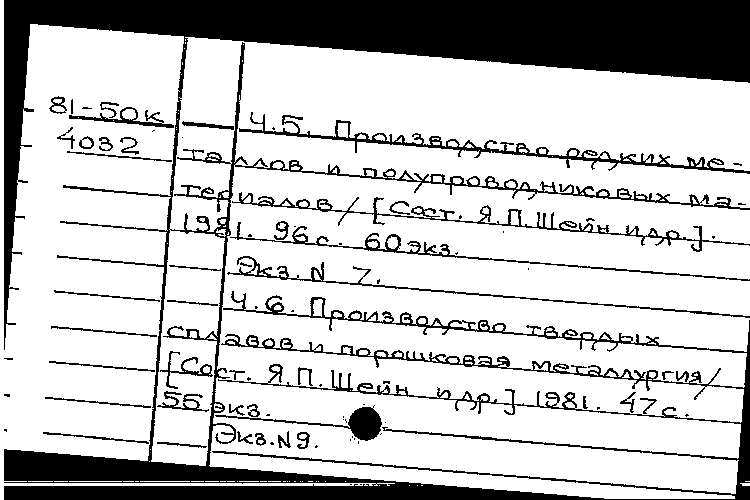 81-50к
4032
Ч.5. Производство редких ме-
таллов и полупроводниковых ма-
териалов / [Сост. Я.П.Шейн и др.].
1981. 96с. 60 экз.
Экз. N 7.
Ч.6. Производство твердых
сплавов и порошковая металлургия/
[Сост. Я.П.Шейн и др.] 1981. 47с.
55 экз.
Экз.N9.